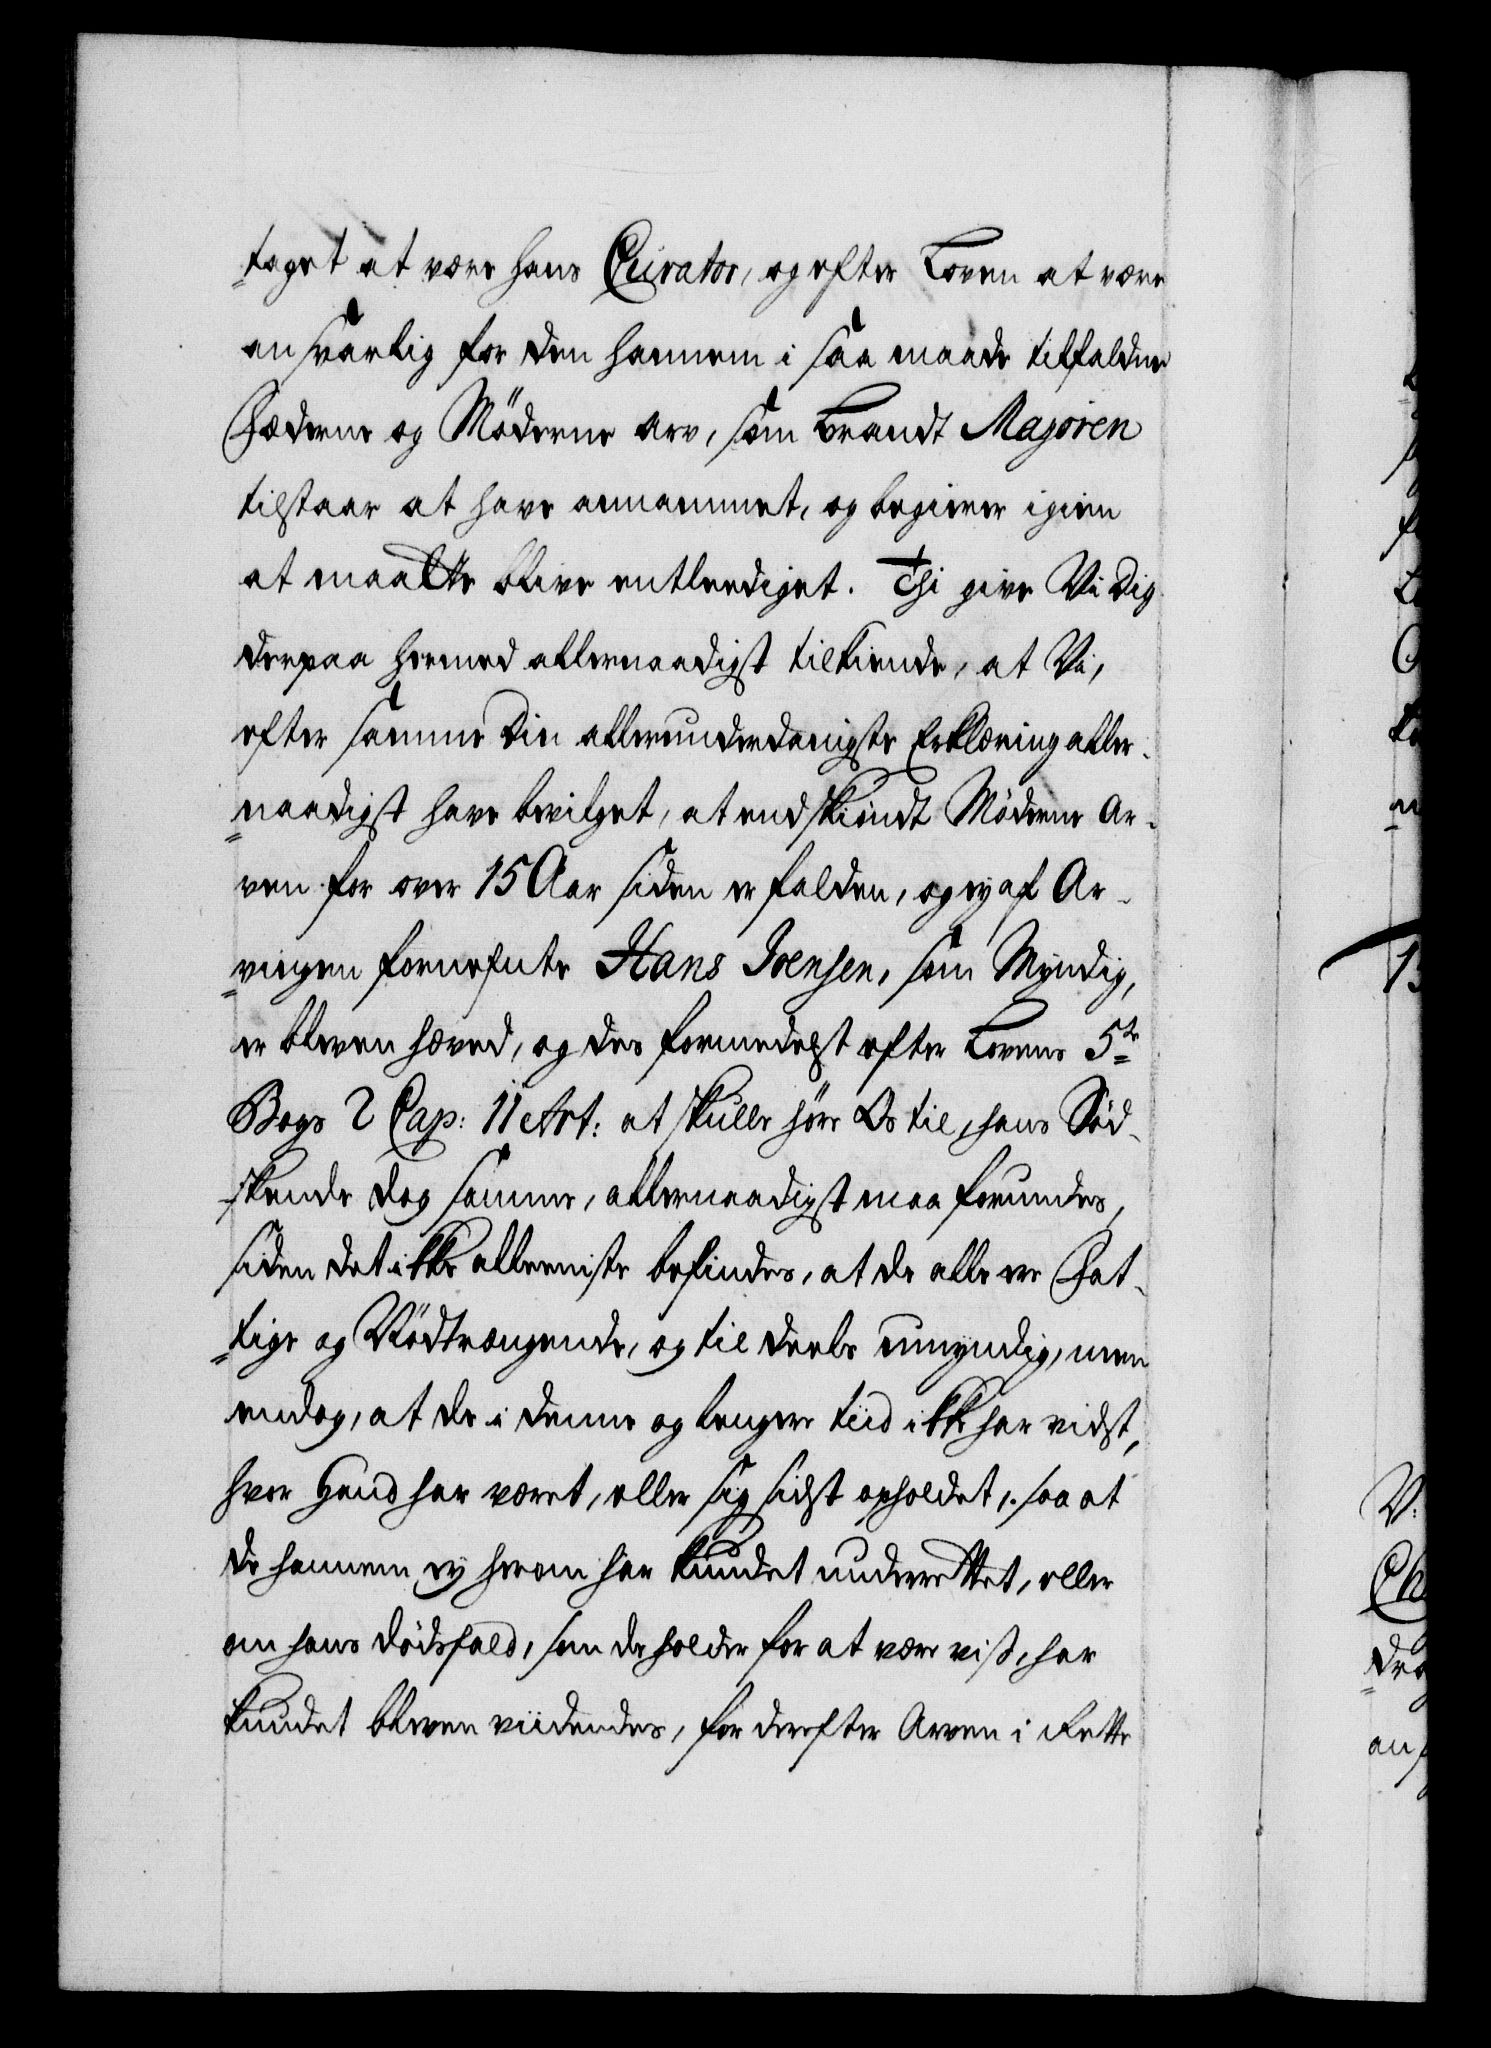 taget at være hans Curator, og efter Loven at være
ansvarlig for den hannem i saa maade tilfaldne
Fæderne og Möderne Arv, som Brandt Majoren
tilstaar at have annammet, og begierer igien
at maatte blive entlediget. Thi give Vi Dig
derpaa hermed allernaadigst tilkiende, at Vi,
efter samme Din allerunderdanigste Erklæring aller-
naadigst have bevilget, at endskiöndt Möderne Ar-
ven for over 15 Aar siden er falden, og ey af Ar-
vingen fornefnte Hans Joensen, som Myndig,
er bleven hæved, og des formedelst efter Lovens 5te
Bogs 2 Cap: 11 Art: at skulle höre Os til, hans Söd-
skende dog samme, allernaadigst maa forundes,
siden det ikke alleeniste befindes, at de alle ere Fat-
tige og Nödtrængende, og til deels umyndig, men
endog, at de i denne og lengere tiid ikke har vidst,
hvor Hand har været, eller sig sidst opholdet, saa at
de hannem ey herom har kundet underrettet, eller
om hans Dödsfald, som de holder for at være vist, har
kundet bleven viidendes, for derefter Arven i rette